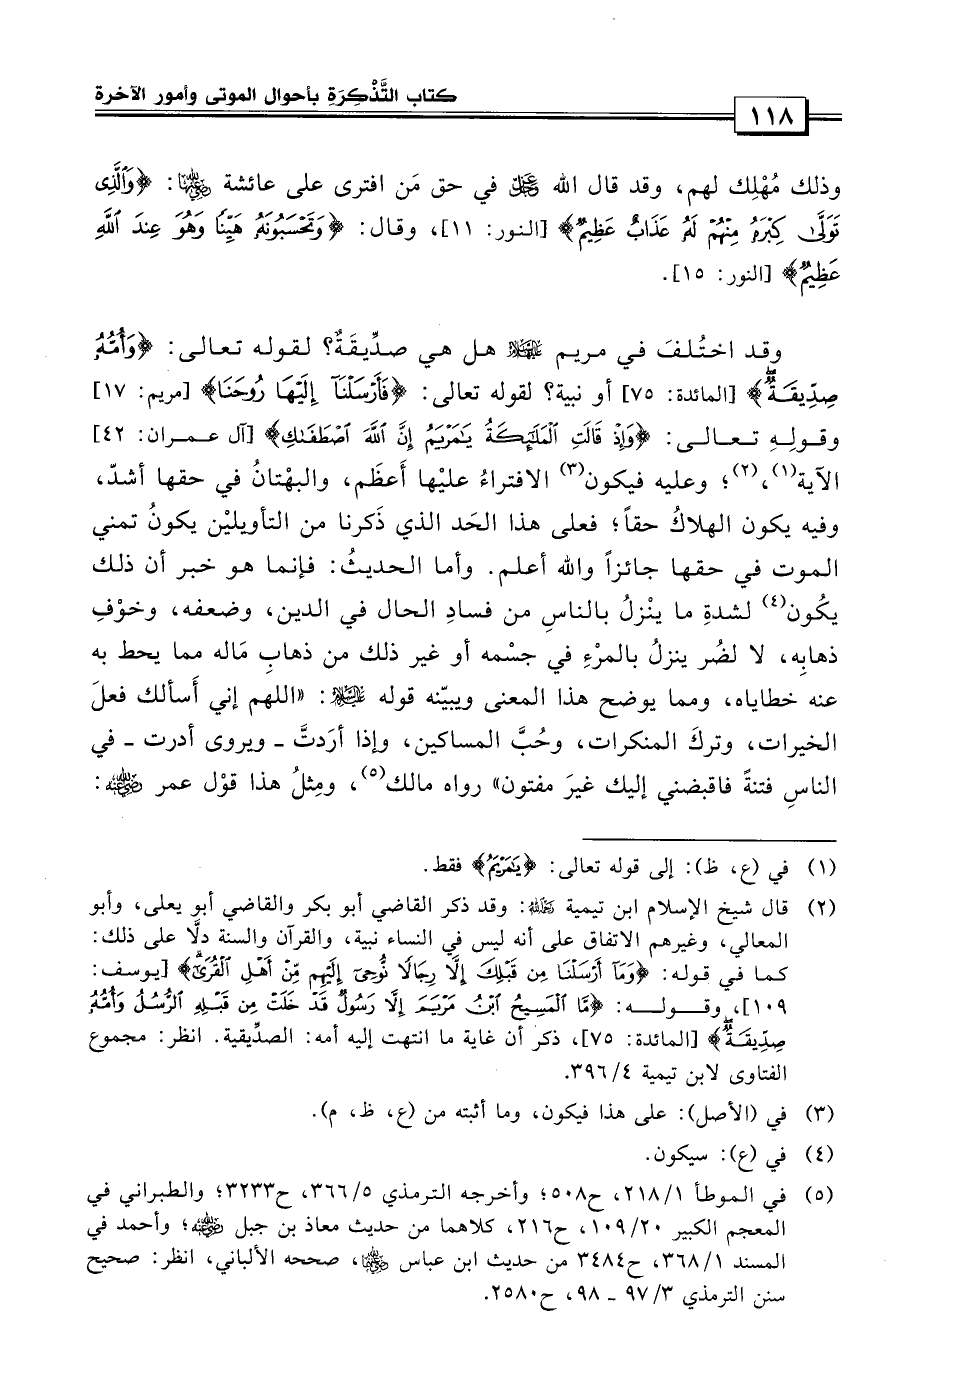 كتاب التَّذْكِرَةِ بأحوال الموتى وأمور الآخرة
١١٨
وذلك مُهْلِك لهم، وقد قال الله ﷻ في حق مَن افترى على عائشة رضي الله عنها: ﴿وَٱلَّذِى
تَوَلَّىٰ كِبْرَهُۥ مِنْهُمْ لَهُۥ عَذَابٌ عَظِيمٌ﴾ [النور: ١١]، وقال: ﴿وَتَحْسَبُونَهُۥ هَيِّنًا وَهُوَ عِندَ ٱللَّهِ
عَظِيمٌ﴾ [النور: ١٥].
وقد اختُلفَ في مريم عليها السلام هل هي صدِّيقَةٌ؟ لقوله تعالى: ﴿وَأُمُّهُۥ
صِدِّيقَةٌۖ﴾ [المائدة: ٧٥] أو نبية؟ لقوله تعالى: ﴿فَأَرْسَلْنَآ إِلَيْهَا رُوحَنَا﴾ [مريم: ١٧]
وقولِهِ تعالى: ﴿وَإِذْ قَالَتِ ٱلْمَلَٰٓئِكَةُ يَٰمَرْيَمُ إِنَّ ٱللَّهَ ٱصْطَفَىٰكِ﴾ [آل عمران: ٤٢]
الآية(١)،(٢)؛ وعليه فيكون(٣) الافتراءُ عليْها أَعظَم، والبهْتانُ في حقها أشدّ،
وفيه يكون الهلاكُ حقاً؛ فعلى هذا الحَد الذي ذَكرنا من التأويليْن يكونُ تمني
الموت في حقها جائزاً والله أعلم. وأما الحديثُ: فإنما هو خبر أن ذلك
يكُون(٤) لشدةِ ما ينْزلُ بالناسِ من فسادِ الحال في الدين، وضعفه، وخوْفِ
ذهابِه، لا لضُر ينزلُ بالمرْءِ في جسْمه أو غير ذلك من ذهابِ مَاله مما يحط به
عنه خطاياه، ومما يوضح هذا المعنى ويبيّنه قوله عليه السلام: «اللهم إني أَسألك فعلَ
الخيرات، وتركَ المنكرات، وحُبَّ المساكين، وإذا أرَدتَّ ـ ويروى أدرت ـ في
الناسِ فتنةً فاقبضني إليك غيرَ مفتون» رواه مالك(٥)، ومِثلُ هذا قوْل عمر رضي الله عنه:
(١) في (ع، ظ): إلى قوله تعالى: ﴿يَٰمَرْيَمُ﴾ فقط.
(٢) قال شيخ الإسلام ابن تيمية رحمه الله: وقد ذكر القاضي أبو بكر والقاضي أبو يعلى، وأبو
المعالي، وغيرهم الاتفاق على أنه ليس في النساء نبية، والقرآن والسنة دلَّا على ذلك:
كما في قوله: ﴿وَمَآ أَرْسَلْنَا مِن قَبْلِكَ إِلَّا رِجَالًا نُّوحِىٓ إِلَيْهِم مِّنْ أَهْلِ ٱلْقُرَىٰٓۗ﴾ [يوسف:
١٠٩]، وقوله: ﴿مَّا ٱلْمَسِيحُ ٱبْنُ مَرْيَمَ إِلَّا رَسُولٌ قَدْ خَلَتْ مِن قَبْلِهِ ٱلرُّسُلُ وَأُمُّهُۥ
صِدِّيقَةٌۖ﴾ [المائدة: ٧٥]، ذكر أن غاية ما انتهت إليه أمه: الصدِّيقية. انظر: مجموع
الفتاوى لابن تيمية ٣٩٦/٤.
(٣) في (الأصل): على هذا فيكون، وما أثبته من (ع، ظ، م).
(٤) في (ع): سيكون.
(٥) في الموطأ ٢١٨/١، ح٥٠٨؛ وأخرجه الترمذي ٣٦٦/٥، ح٣٢٣٣؛ والطبراني في
المعجم الكبير ١٠٩/٢٠، ح٢١٦، كلاهما من حديث معاذ بن جبل رضي الله عنه؛ وأحمد في
المسند ٣٦٨/١، ح٣٤٨٤ من حديث ابن عباس رضي الله عنهما، صححه الألباني، انظر: صحيح
سنن الترمذي ٩٧/٣ ـ ٩٨، ح٢٥٨٠.